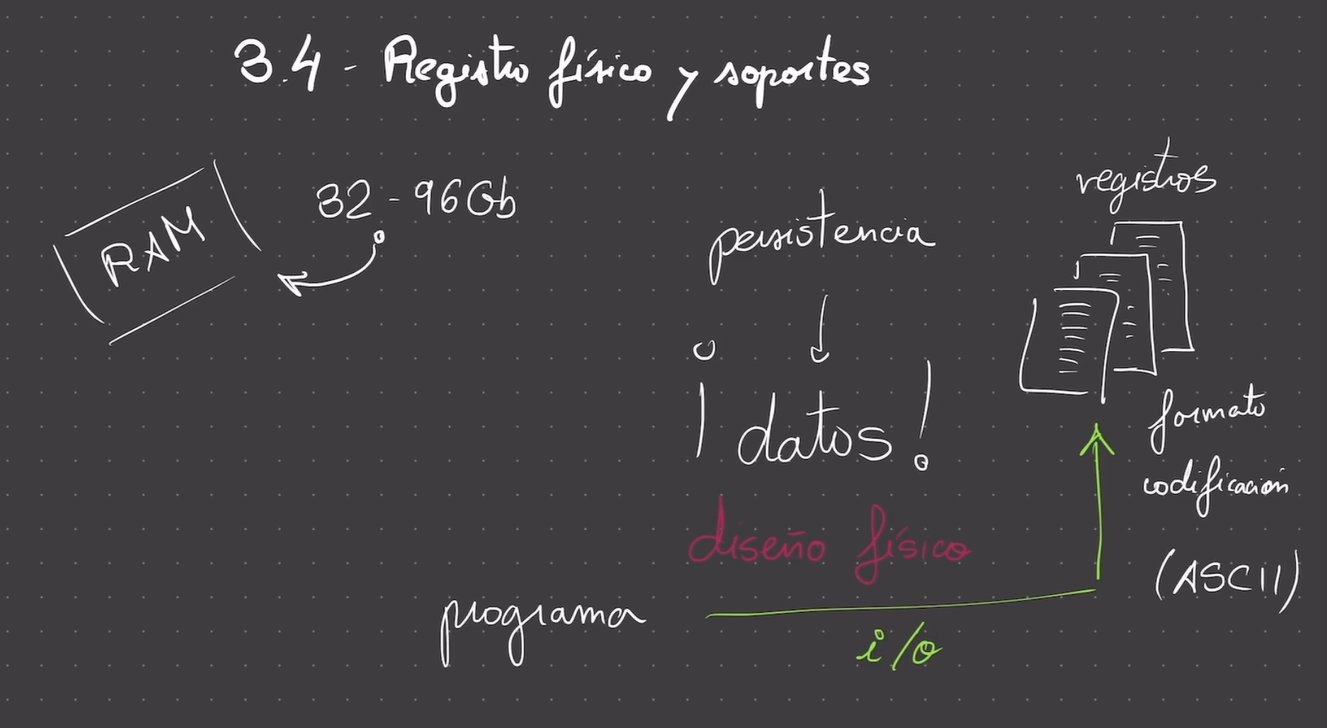 3.4 - Registro físico y soportes
RAM
32 - 96Gb
persistencia
¡datos!
diseño físico
programa
i/o
registros
formato
codificación
(ASCII)